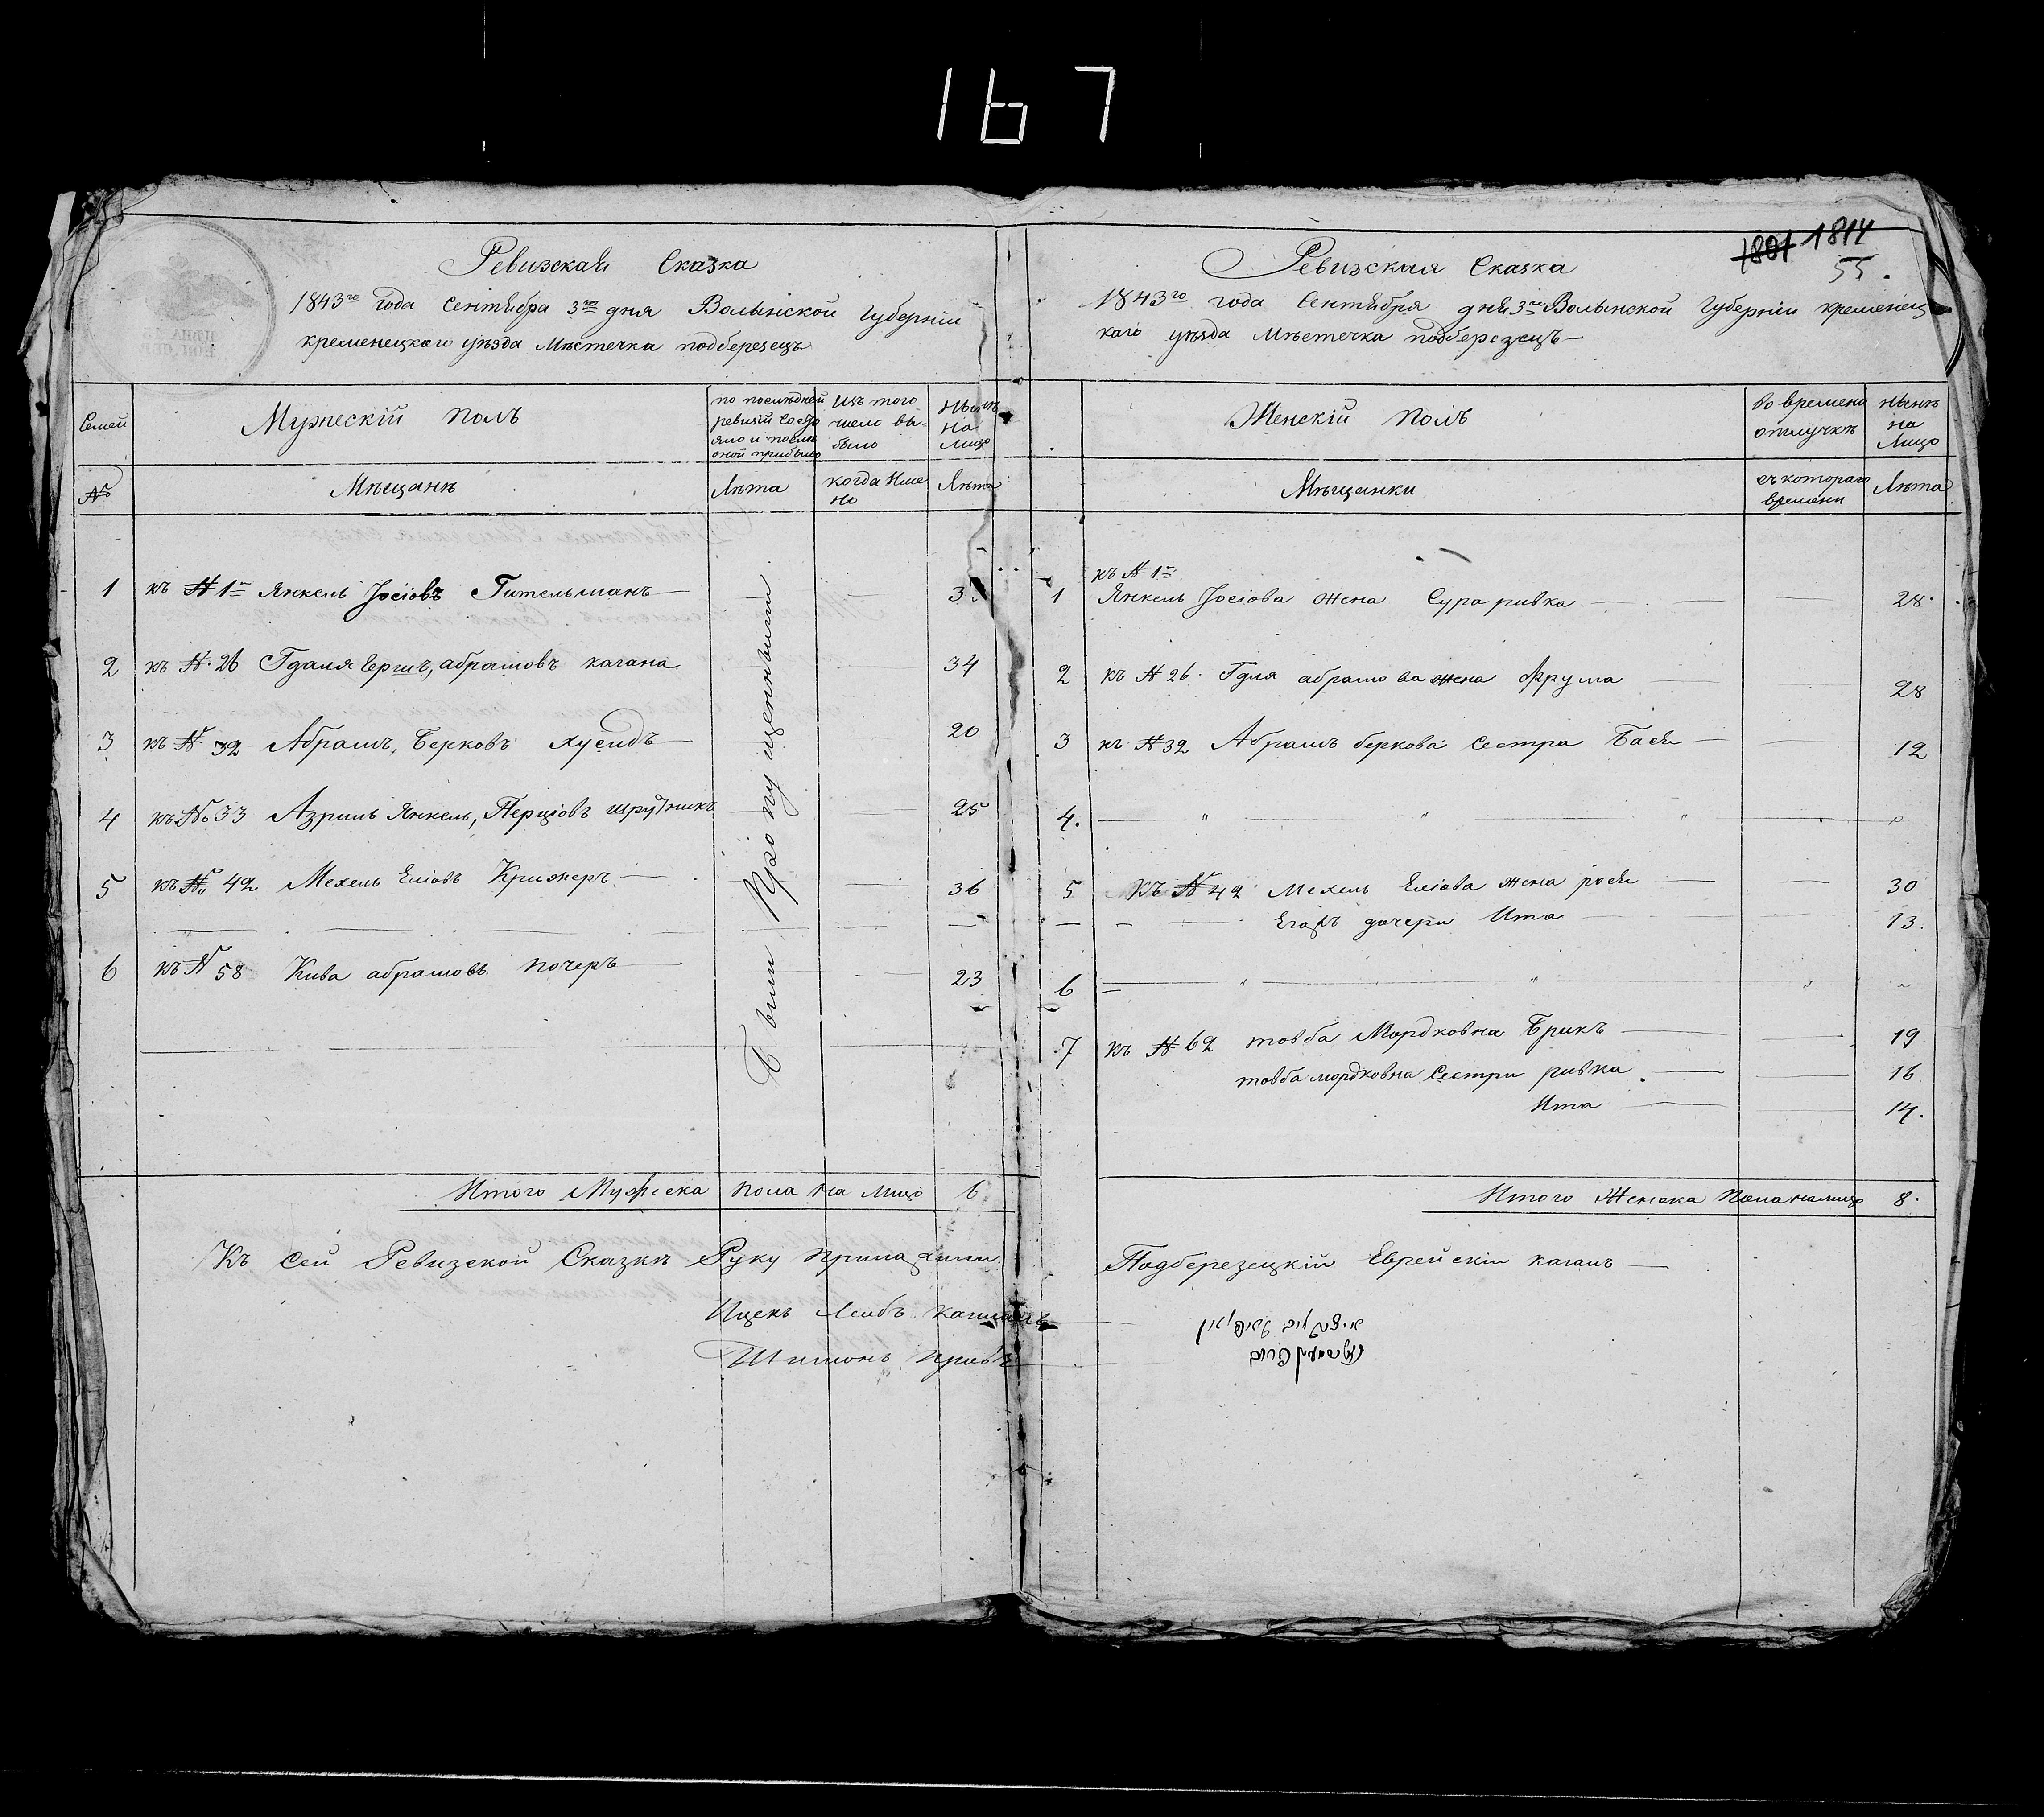 167
Ревизская Сказка
1843го года Сентября 3го дня Волынской Губерніи
кременецкаго уѣзда Мѣстечка подберезецъ
Семей
Мужескій полъ
по послѣдней ревизіи состояло и послѣ оной прибыло
Изъ того числа выбыло
Нынѣ на Лицо
№
Мѣщанѣ
Лѣта
когда Имено
Лѣта
1 къ № 1му Янкель Іосіовъ Гительманъ
2 къ № 26 Гдаля Ершъ, абрамовъ кагана 34
3 къ № 32 Абрамъ, Берковъ хусидъ 20
4 къ № 33 Азриль Янкель, Перціовъ 25
5 къ № 42 Мехель Еліовъ Крижеръ 36
6 къ № 58 Кива абрамовъ почеръ 23
Были Пропущенными
Итого Мужеска пола на лицо 6
Къ сей Ревизской Сказкѣ Руку приложили
Ицекъ Лейбъ
Шимонъ
1801 1814
55.
Ревизская Сказка
1843го года Сентября дня 3го Волынской Губерніи кременец
каго уѣзда Мѣстечка подберезецъ
Женскій полъ
Во времено отлучкѣ
нынѣ на Лицо
Мѣщанки
съ котораго времени
Лѣта
къ № 1му
1 Янкель Іосіова жена Сура ривка 28
2 къ № 26 Гдля абрамова жена Фрума 28
3 къ № 32 Абрамъ беркова сестра Бася 12
4.
5 Къ № 42 Мехель Еліова жена рося 30
Егожъ дочери Ита 13.
6
7 къ № 62 товба Мордковна Брикъ 19
товба мордковна Сестри ривка 16
Ита 14.
Итого Женска Пола налицо 8.
Подберезецкій Еврейскіи кагалъ